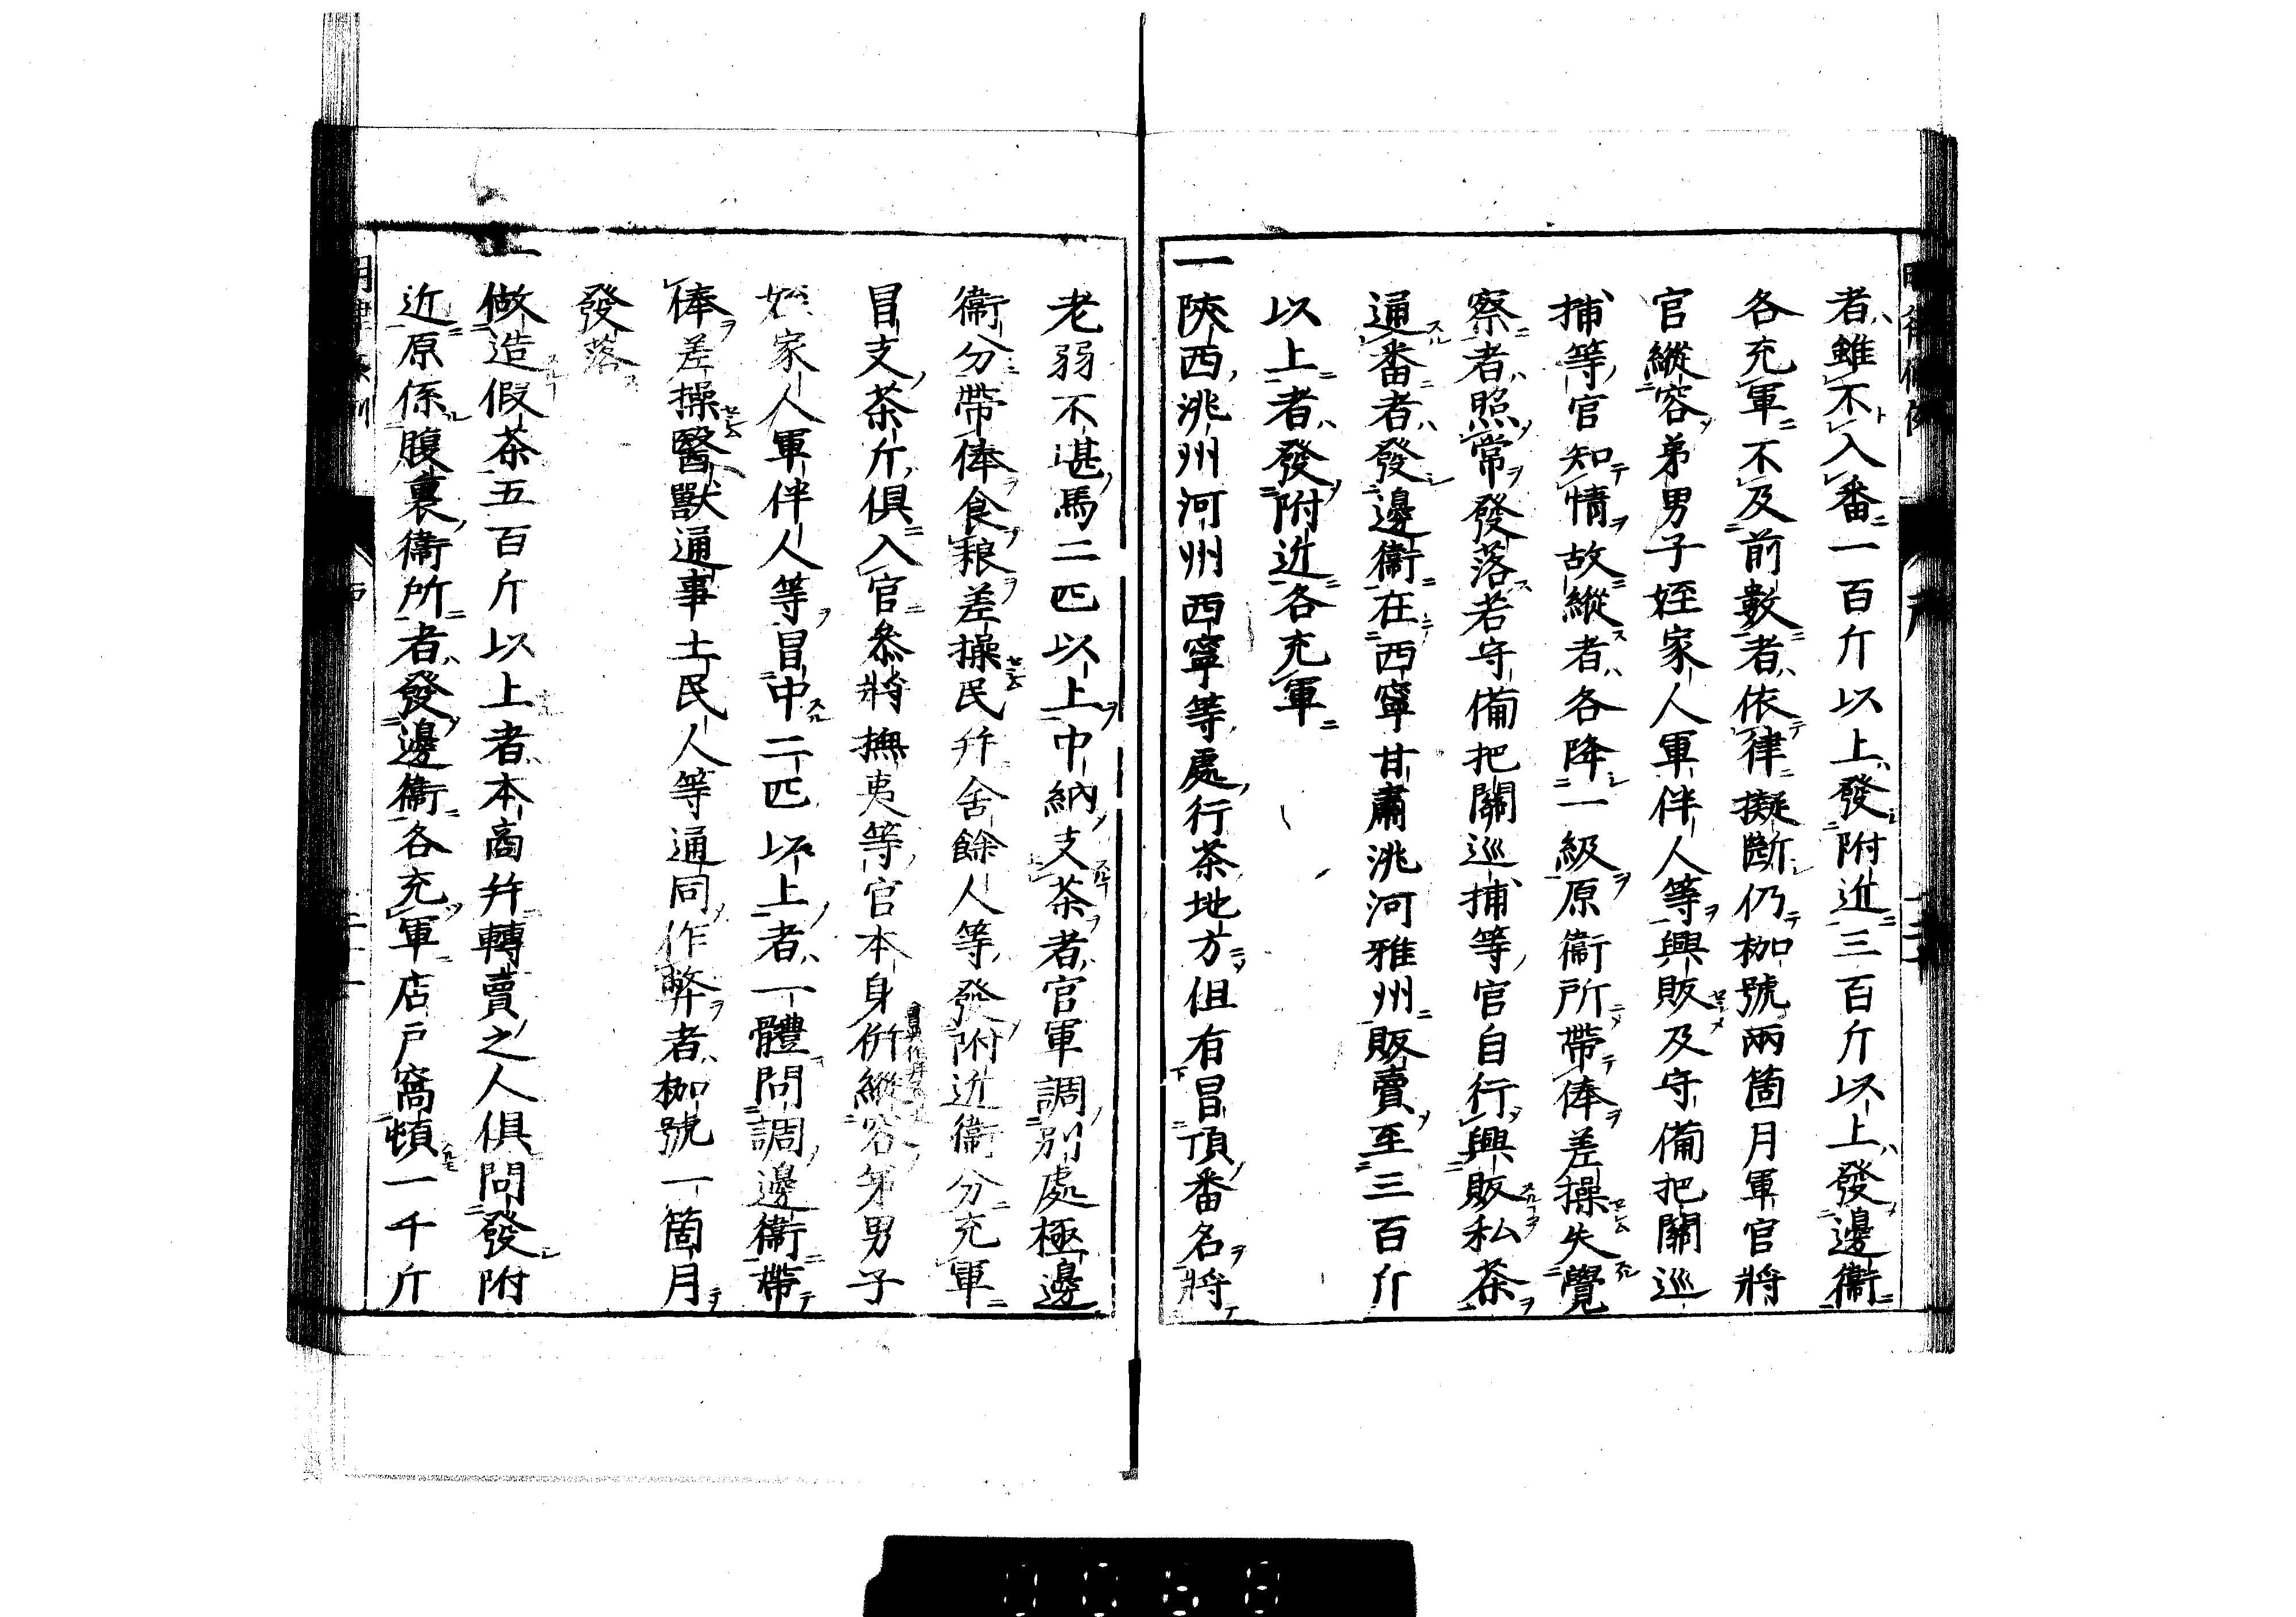 者雖不入番一百斤以上發附近三百斤以上發邊衞
各充軍不及前數者依律擬斷仍枷號兩箇月軍官將
官縱容弟男子姪家人軍伴人等興販及守備把關巡
捕等官知情故縱者各降一級原衞所帶俸差操失覺
察者照常發落若守備把關巡捕等官自行興販私茶
通番者發邊衞在西寧甘肅洮河雅州販賣至三百斤
以上者發附近各充軍
一陝西洮州河州西寧等處行茶地方但有冒頂番名將
老弱不堪馬二匹以上中納支茶者官軍調別處極邊
衞分帶俸食粮差操民幷舍餘人等發附近衞分充軍
冒支茶斤俱入官叅將撫夷等官本身幷縱容弟男子
姪家人軍伴人等冒中二匹以上者一體問調邊衞帶
俸差操醫獸通事土民人等通同作弊者枷號一箇月
發落
一做造假茶五百斤以上者本商幷轉賣之人俱問發附
近原係腹裏衞所者發邊衞各充軍店戶窩頓一千斤